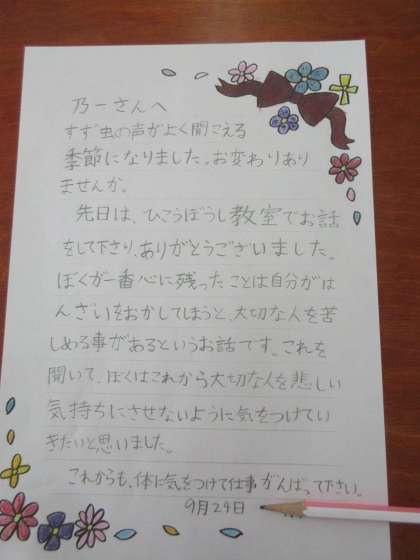 乃一さんへ
すず虫の声がよく聞こえる
季節になりました。お変わりあり
ませんか。
先日は、ひこうぼうし教室でお話
をして下さり、ありがとうございました。
ぼくが一番心に残ったことは自分がは
んざいをおかしてしまうと、大切な人を苦
しめる事があるというお話です。これを
聞いて、ぼくはこれから大切な人を悲しい
気持ちにさせないように気をつけてい
きたいと思いました。
これからも、体に気をつけて仕事がんばって下さい。
9月29日